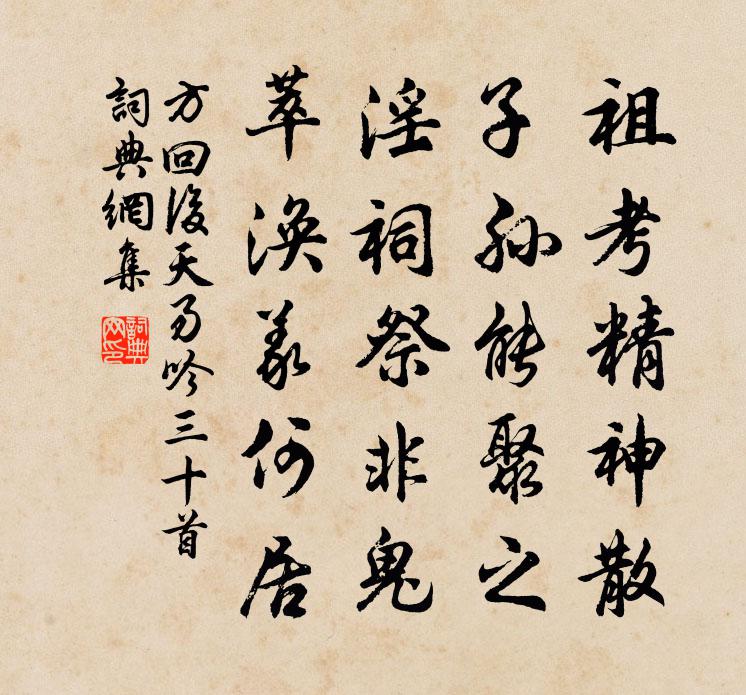 祖考精神散
子孫能聚之
淫祠祭非鬼
萃渙義何居
方回後天易吟三十首
詞典網集
詞典網印